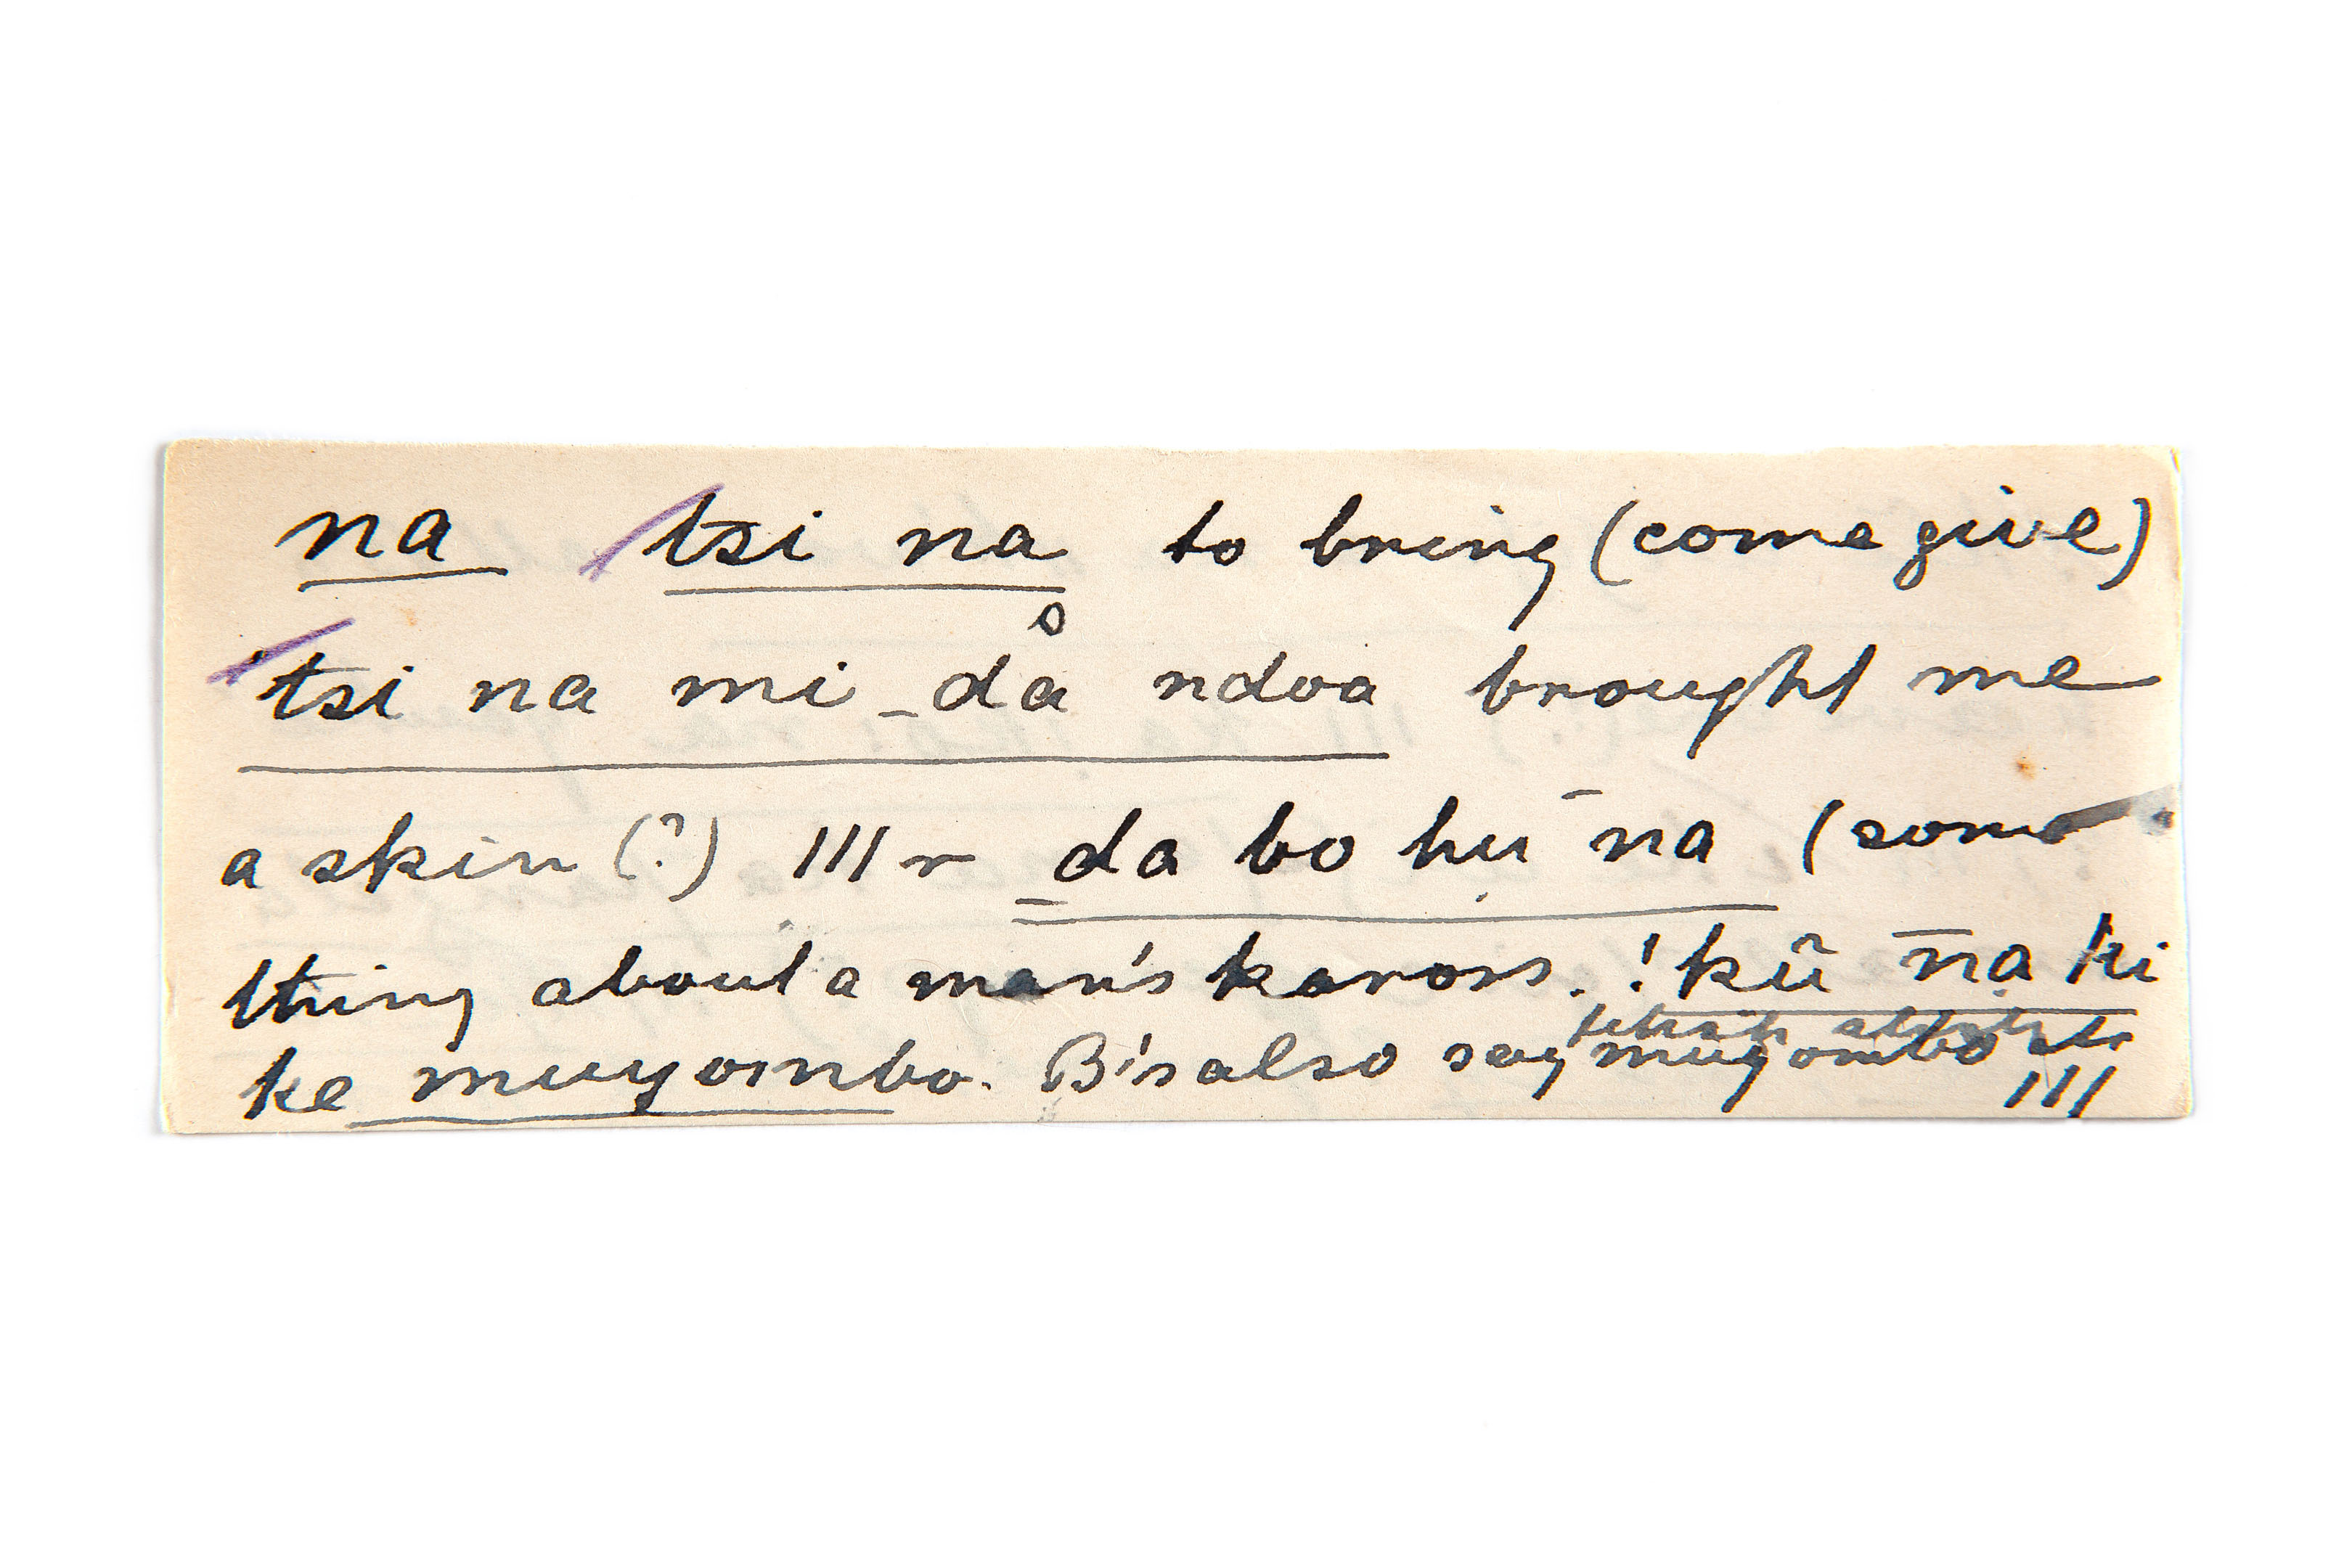 na tsi na to bring (come give)
tsi na mi _da̐ ndoa brought me
a skin (?) III r da bo hu ̄na (some
thing about a man's kaross. !kũ ̄na hi
ke muyombo. B's also say muyombo
III